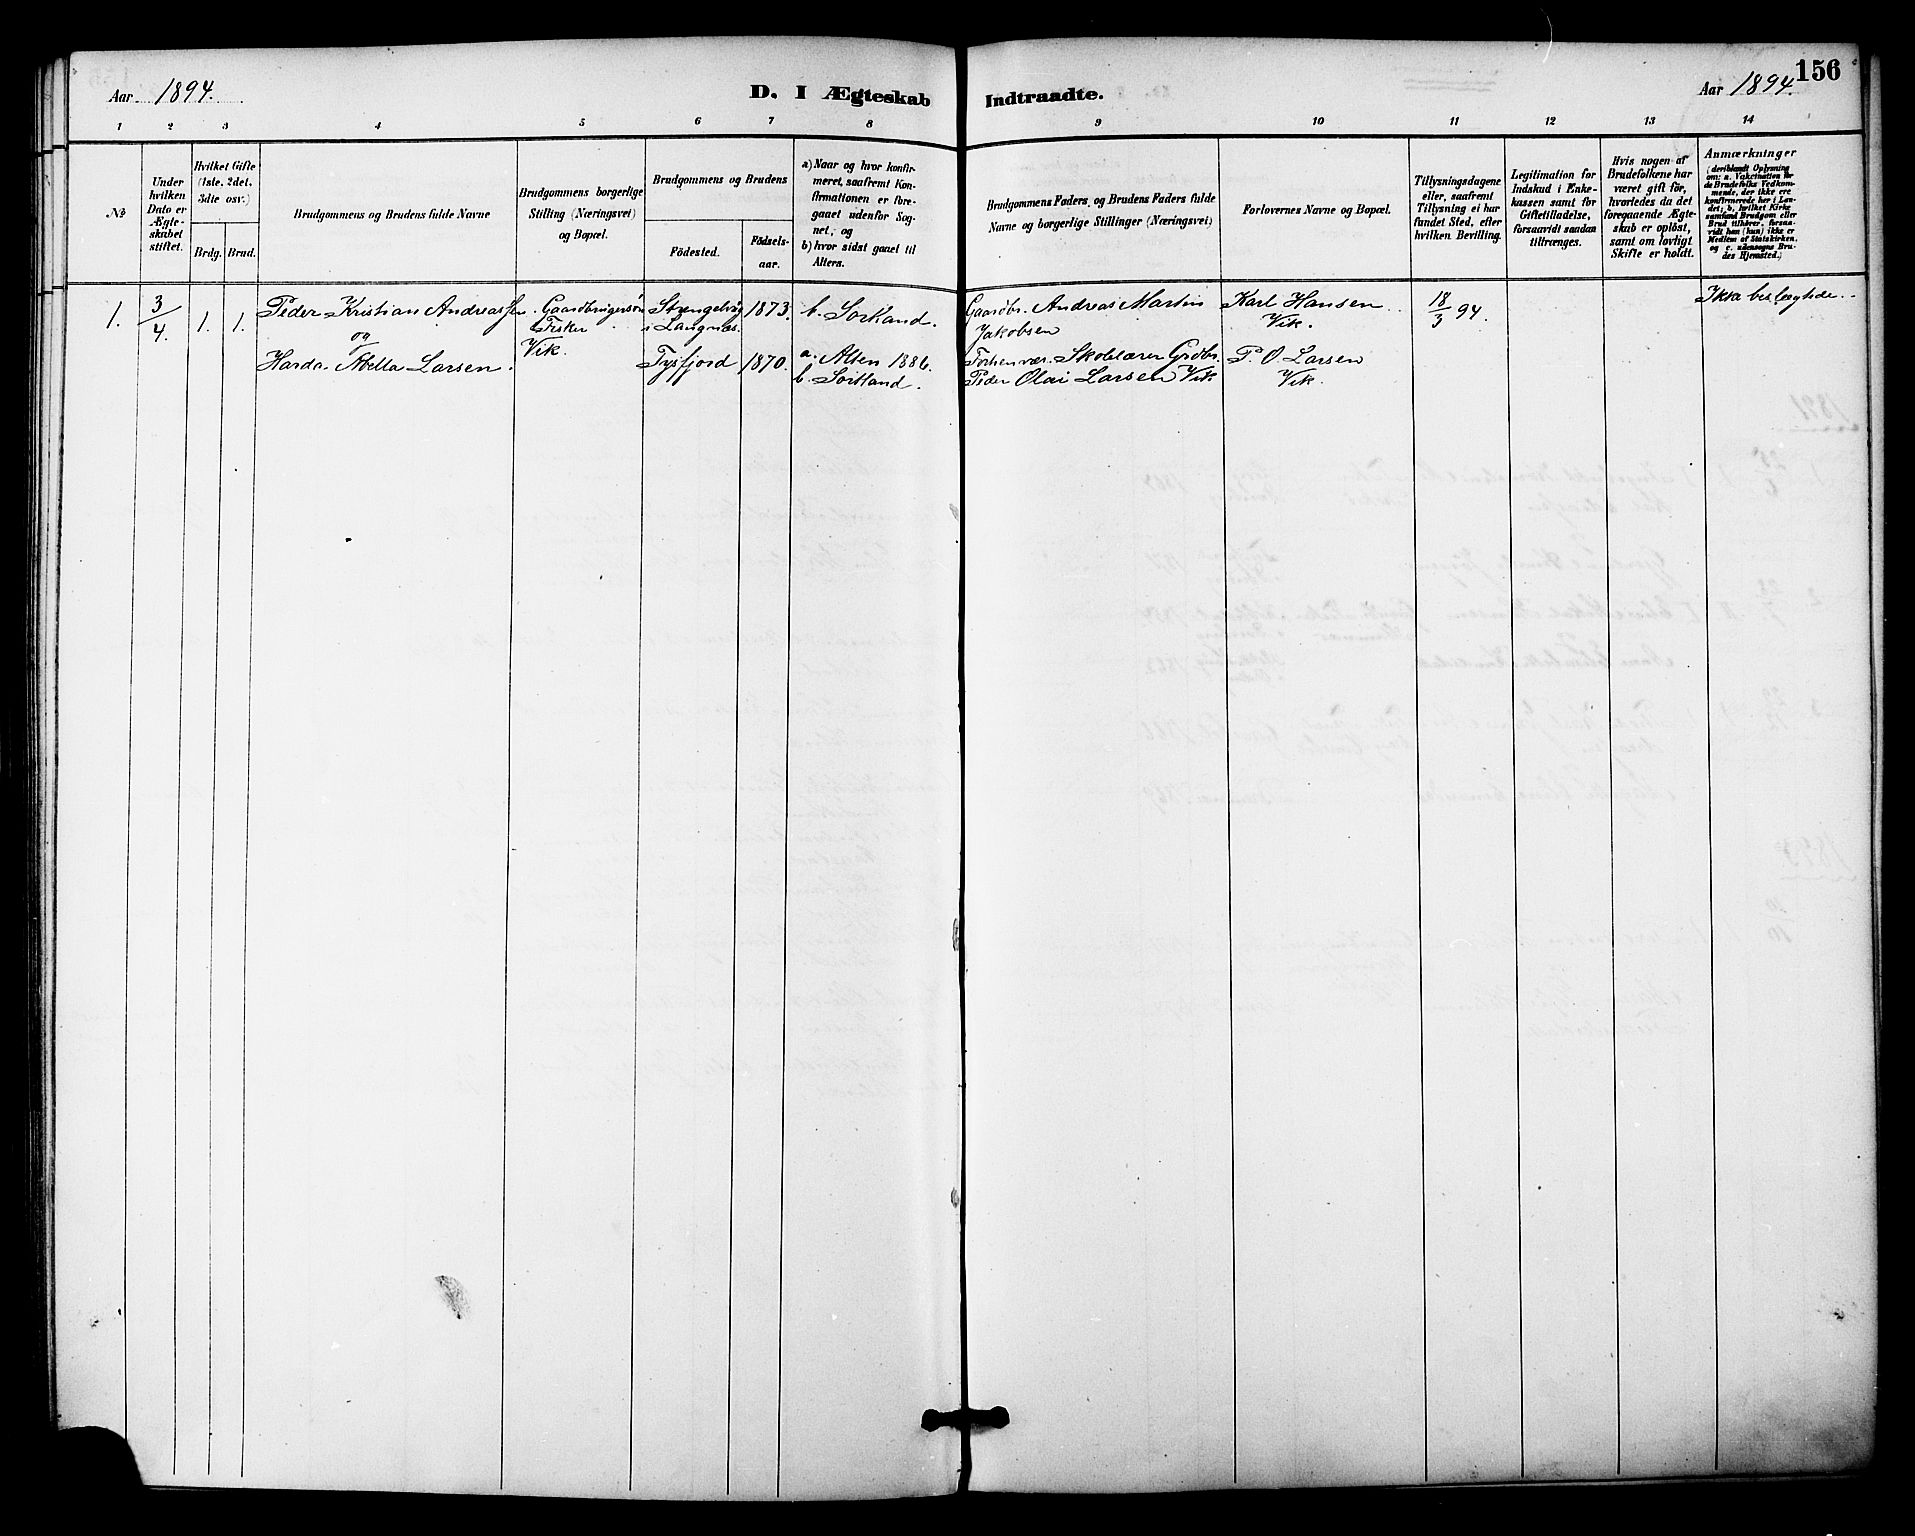 Aar 1894.
D. I Ægteskab
Indtraadte.
Aar 1894.
156
1 2 3 4 5 6 7 8 9 10 11 12 13 14
№
Under
hvilken
Dato er
Ægte-
skabet
stiftet.
Hvilket Gifte
(1ste, 2det,
3dte osv.)
Brdg. Brud.
Brudgommens og Brudens fulde Navne
Brudgommens borgerlige
Stilling (Næringsvei)
og Bopæl.
Brudgommens og Brudens
Födested.
Födsels-
aar.
a) Naar og hvor konfir-
meret, saafremt Kon-
firmationen er fore-
gaaet udenfor Sog-
net, og
b) hvor sidst gaaet til
Alters.
Brudgommens Faders, og Brudens Faders fulde
Navne og borgerlige Stillinger (Næringsvei)
Forlovernes Navne og Bopæl.
Tillysningsdagene
eller, saafremt
Tillysning ei har
fundet Sted, efter
hvilken Bevilling.
Legitimation for
Indskud i Enke-
kassen samt for
Giftetilladelse,
forsaavidt saadan
tiltrænges.
Hvis nogen af
Brudefolkene har
været gift för,
hvorledes da det
foregaaende Ægte-
skab er oplöst,
samt om lovligt
Skifte er holdt.
Anmærkninger
(deriblandt Oplysning
om: a. Vakcination for
de Brudefolks Vedkom-
mende, der ikke ere
konfirmerede her i Lan-
det; b. hvilket Kirke-
samfund Brudgom eller
Brud tilhörer, forsaa-
vidt han (hun) ikke er
Medlem af Statskirken,
og c. udensogns Bru-
des Hjemsted.)
1. 3/4. 1. 1. Peder Kristian Andreassen
og
Harda Abella Larsen.
Gaardbrugersön
Fisker
Vik.
Strengelvåg
i Langnæs.
1873.
b. Sortland.
Tysfjord 1870.
a. Alten 1886.
b. Sortland.
Gaardbr. Andreas Martin
Jakobsen
Forhenvær. Skolelærer Grdbr.
Peder Olai Larsen Vik
Karl Hansen
Vik.
P. O. Larsen
Vik.
18/3 94.
Ikke beslægtede.